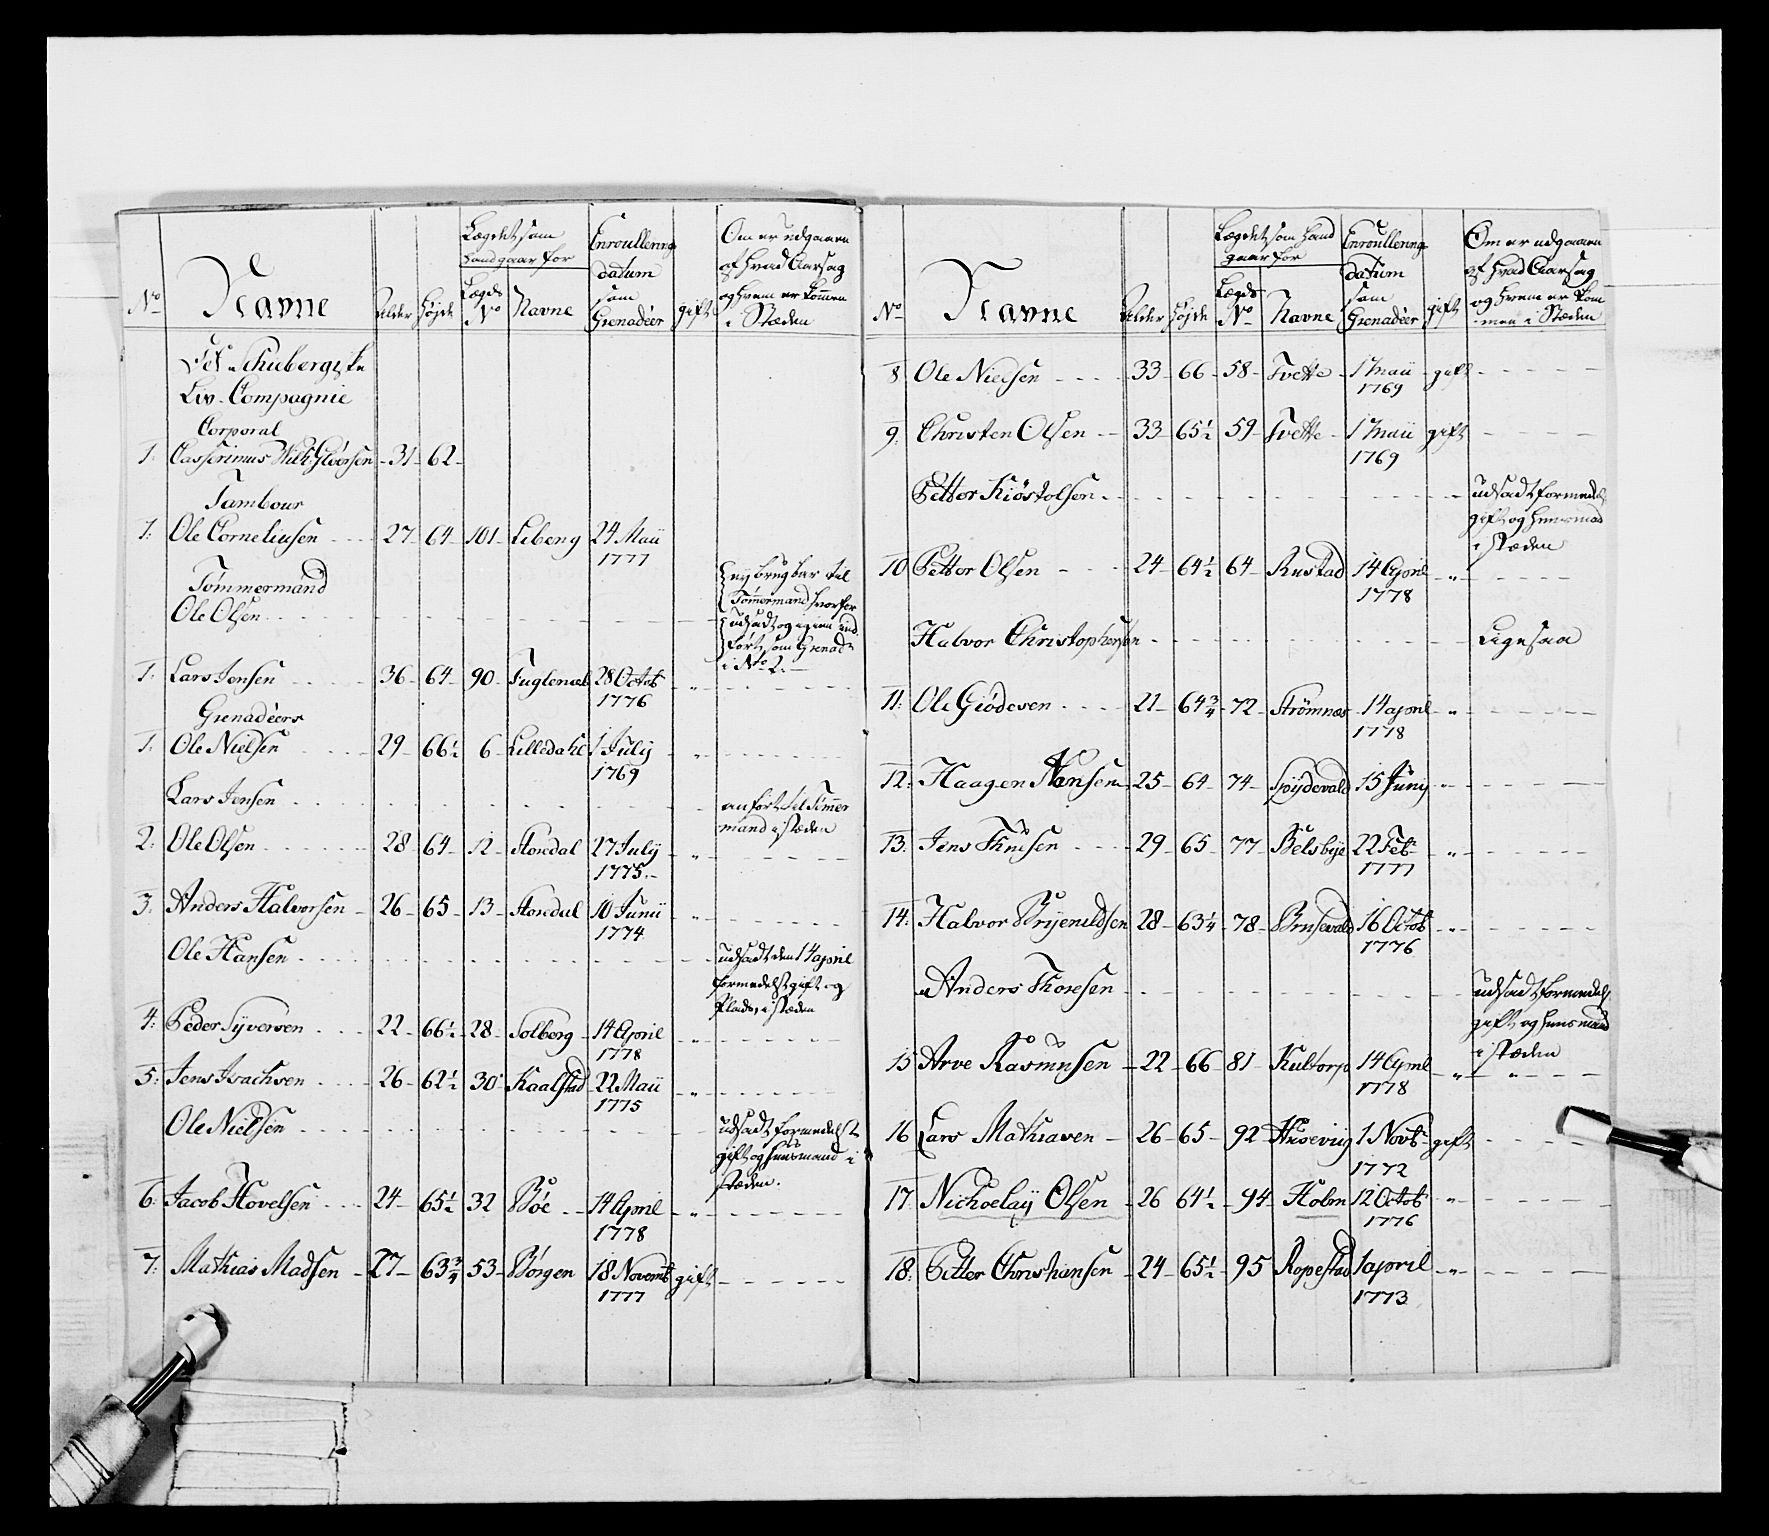 No
Navne
Alder
Højde
Lægdet som
hand gaar for
Lægds
No
Navne
Enroullering
datum
som
Grenadéer
gift
Om er udgaaen
af hvad Aarsag
og hvem er kommen
i Stæden
Det
Liv-Compagnie
Corporal
1. Casserimus 31 - 62 -
Tambour
1: Ole Corneliusen - 27 - 64 - 101 - Liberg 24 Maii
1777
Tømmermand
Ole Olsen
eij brugbar til
Tømmermand hvorfor
udsadt og igien ind
ført som Grenadr
i No 2. -
1: Lars Jensen - 36 - 64 - 90 - Fuglenæb 28 Octob
1776
Grenadéers
1: Ole Nielsen - 29 - 66½ 6 - Lilledahl 1 Julij
1769
Lars Jensen
anført til Tømer
mand i stæden
2: Ole Olsen - 28 - 64 - 12 - Storedal 27 Julij
1775. -
3: Anders Halvorsen - 26 - 65 - 13 - Storedal 10 Junii
1774
Ole Hansen
udsadt den 14 April
formedelst gift og
Plads, i stæden
4: Peder Syversen - 22 - 66½ - 28 - Solberg - 14 April
1778
5: Jens Isachsen - 26 - 62½ 30 - Kaalstad 22 Maii
1775
Ole Nielsen
udsadt formedelst
gift og huusmand i
stæden.
6: Jacob Hovelsen - 24 - 65½ 32 Bøe - 14 April
1778
7: Mathias Madsen - 27 - 63¾ 53 - Børgen 18 Novemb gift
1777
No
Navne
Alder
Højde
Lægdet som hand
gaar for
Lægds
No
Navne
Enroullering
datum
som
Grenadéer
gift
Om er udgaaen
af hvad Aarsag
og hvem er kom
men i Stæden
8 Ole Nielsen - 33 - 66 - 58 - Tvette - 1 Maii - gift
1769
9: Christen Olsen - 33 - 65½ 59 - Tvette - 1 Maii gift
1769
Petter Kiøstolsen
udsadt formedels
gift og huusmad
i stæden
10 Petter Olsen - 24 - 64½ 64 - Rustad 14 April
1778
Halvor Christophersen
Ligesaa
11: Ole Giødesen - 21 - 64¾ - 72 - Strømnæs 14 april
1778
12: Haagen Hansen 25 - 64 - 74 - 15 Junij
13: Jens - 29 - 65 - 77 - Belsbye 22 Febr
1777
14: Halvor Bryenildsen 28 - 63¼ - 78 - Brusevold 16 Octob
1776
Anders Thoresen
udsadt formedels
gift og huusmand
i stæden
15 Arve Rasmusen - 22 - 66 - 81 - Kultorp 14 April
1778
16 Lars Mathiasen - 26 - 65 - 92 Husevüg 1 Novb gift
1772
17: Nichoelaij Olsen - 26 64½ - 94 - Holm 12 Octob
1776
18: Petter Christiansen - 24 - 65½ - 95 Ropestad 1 april
1773